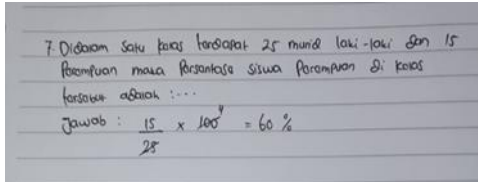 7. Didalam satu kelas terdapat 25 murid laki-laki dan 15
Perempuan maka Persentase siswa Perempuan di kelas
tersebut adalah : ...
Jawab : 15/25 x 100 4 = 60 %